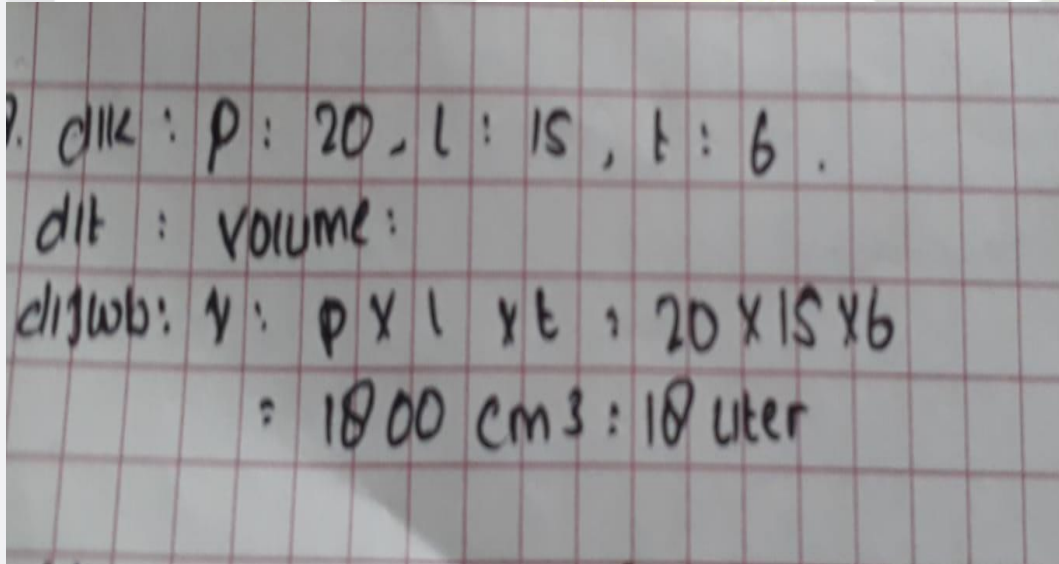 9. dik : p : 20, l : 15, t : 6.
dit : volume :
dijwb : v : p x l x t : 20 x 15 x 6
= 1800 cm3 : 18 liter